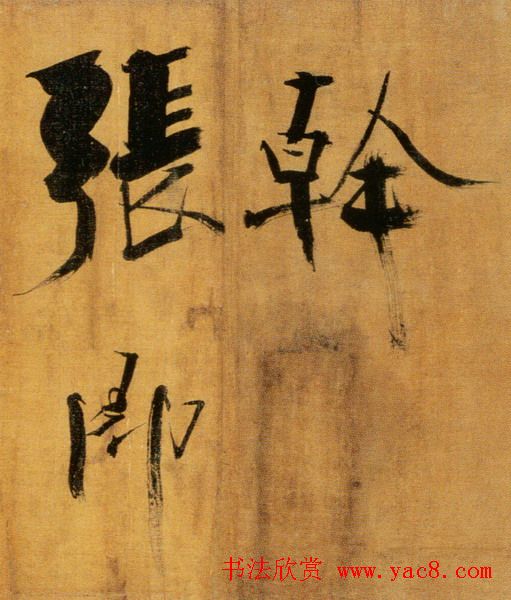 榦
張卿
书法欣赏 www.yac8.com